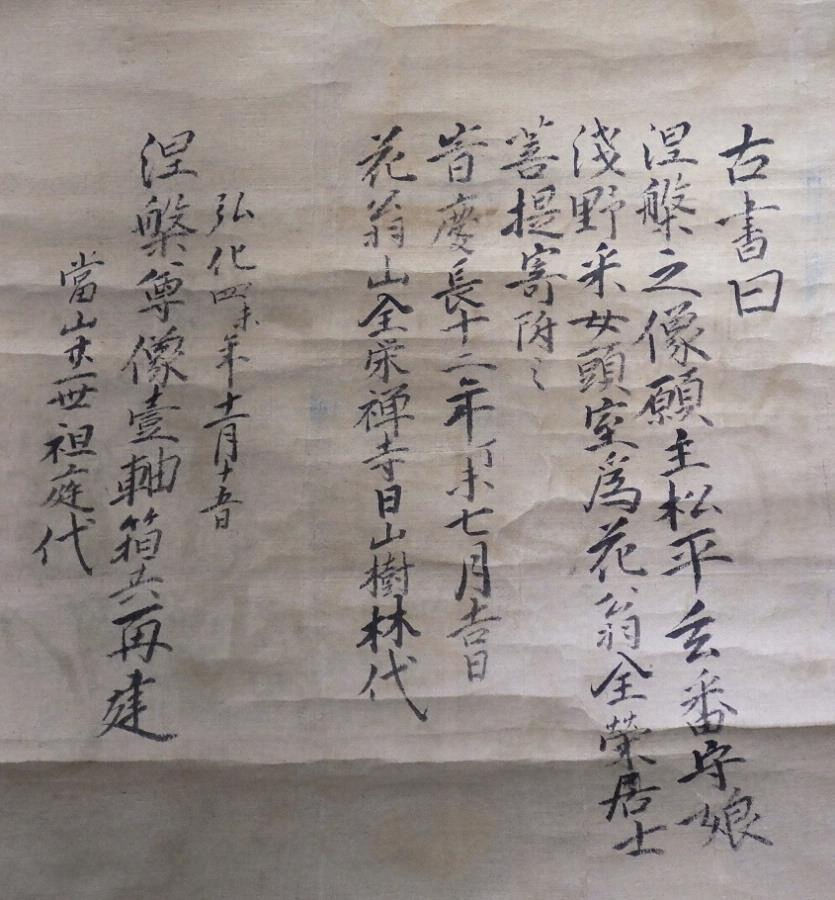 古書曰
涅槃之像願主松平玄番守娘
浅野采女頭室為花翁全榮居士
菩提寄附之
昔慶長十二年丁未七月吉日
花翁山全栄禅寺日山樹林代
弘化四未年十二月十五日
涅槃尊像壹軸箱共再建
當山廿一世祖庭代